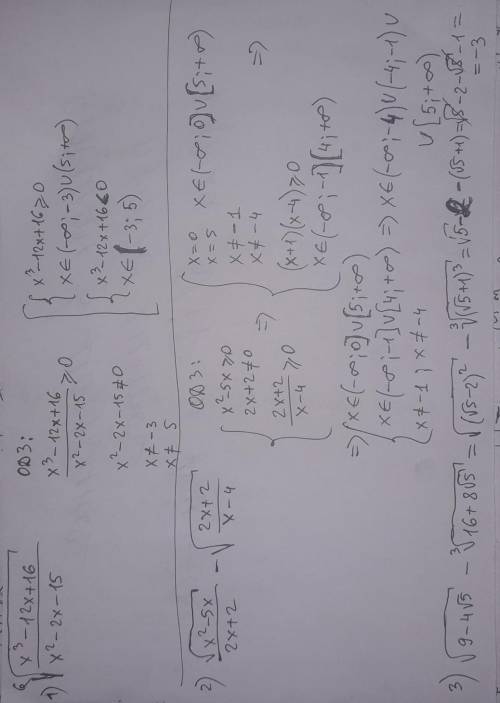 1) ⁶√((x³-12x+16)/(x²-2x-15))
ОДЗ:
(x³-12x+16)/(x²-2x-15) ≥ 0
x²-2x-15≠0
x≠-3
x≠ 5
[ { x³-12x+16≥0
x∈(-∞;-3)∪(5;+∞)
{ x³-12x+16<0
x∈(-3; 5)
2) √(x²-5x)/(2x+2) - √((2x+2)/(x-4))
ОДЗ:
{ x²-5x≥0
2x+2≠0
(2x+2)/(x-4) ≥0
=>
{ x=0
x=5 x∈(-∞;0]∪[5;+∞)
x≠-1
x≠-4
(x+1)(x-4)≥0
x∈(-∞;-1][4;+∞)
=>
=> { x∈(-∞;0]∪[5;+∞)
x∈(-∞;-1]∪[4;+∞) => x∈(-∞;-4)∪(-4;-1)∪
x≠-1; x≠-4
∪[5;+∞)
3) √(9-4√5) - ³√(16+8√5) = √((√5-2)²) - ³√((√5+1)³) = √5-2-(√5+1)=√5-2-√5-1=
=-3